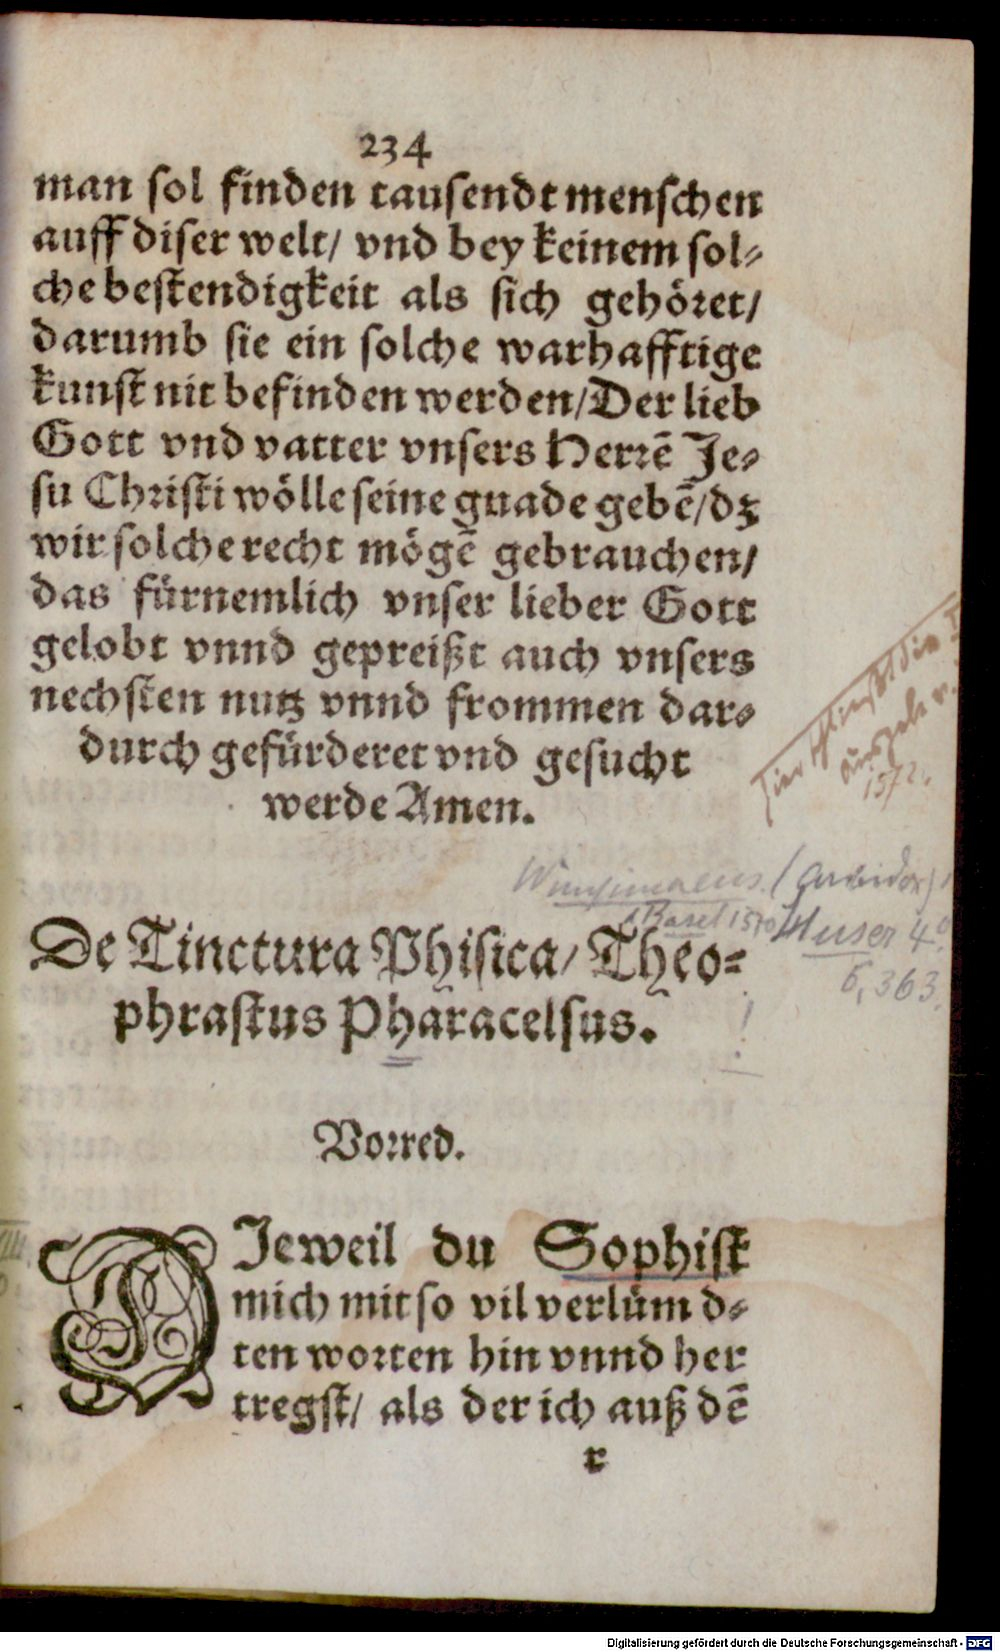 234
man sol finden tausendt menschen
auff diser welt/ vnd bey keinem sol-
che bestendigkeit als sich gehöret/
darumb sie ein solche warhafftige
kunst nit befinden werden/Der lieb
Gott vnd vatter vnsers Herrē Je-
su Christi wölle seine gnade gebē/dz
wir solche recht mögē gebrauchen/
das fürnemlich vnser lieber Gott
gelobt vnnd gepreißt auch vnsers
nechsten nutz vnnd frommen dar-
durch gefürderet vnd gesucht
werde Amen.
Hier schliesst die
Ausgabe v.
1572.
(Basel 1570 Huser 4°
6, 363.
De Tinctura Phisica/ Theo-
phrastus Pharacelsus.
!
Vorred.
DJeweil du Sophist
mich mit so vil verlümd-
ten worten hin vnnd her
tregst/ als der ich auß dē
r
Digitalisierung gefördert durch die Deutsche Forschungsgemeinschaft - DFG